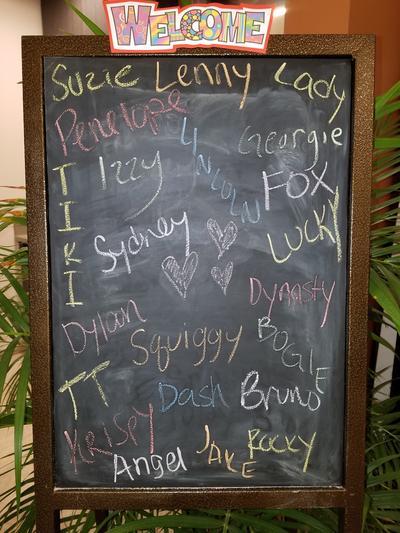 WELCOME
Suzie Lenny Lady
Penelope
LINCOLN
Georgie
TIKI
Izzy
FOX
Sydney
LUCKY
Dynasty
Dylan
Squiggy
BOGIE
TT
Dash
Bruno
KRISPY
Angel
JAKE
ROCKY